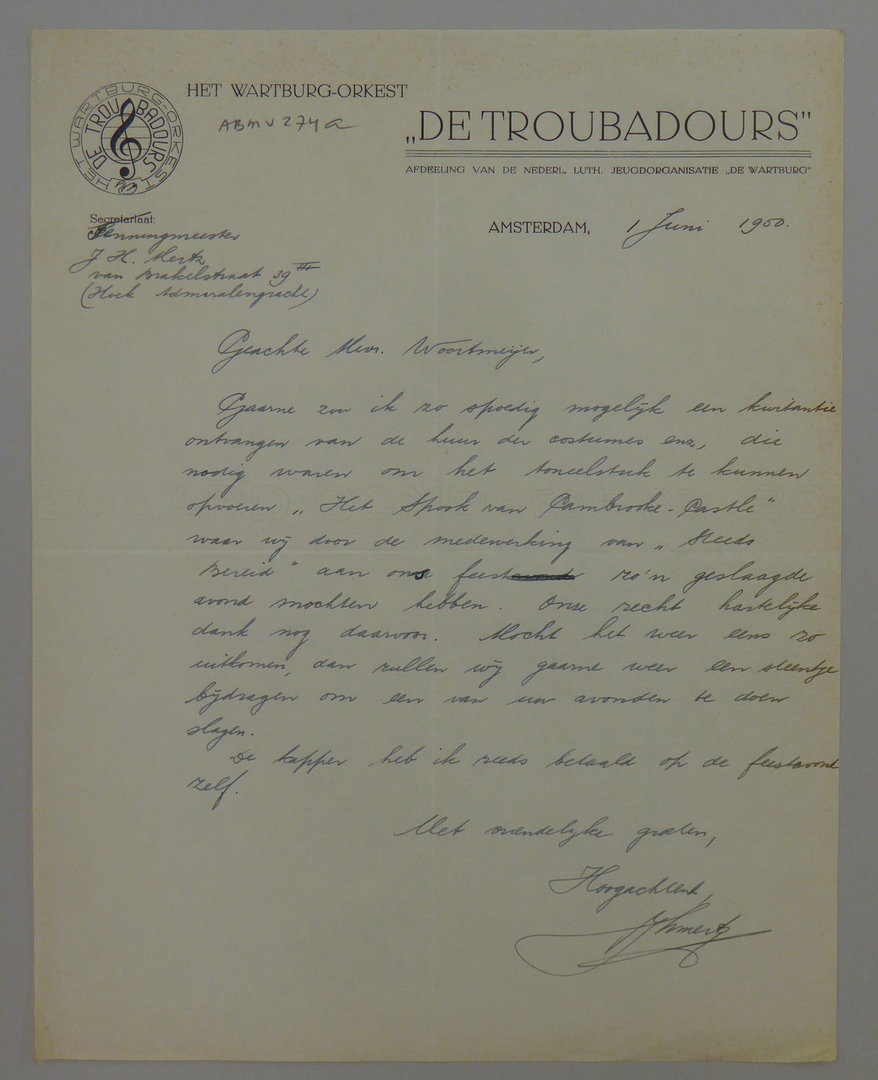 HET WARTBURG-ORKEST
DE TROUBADOURS
HET WARTBURG-ORKEST
ABMV 274a
„DE TROUBADOURS"
AFDEELING VAN DE NEDERL. LUTH. JEUGDORGANISATIE „DE WARTBURG"
Secretariaat:
Penningmeester
J H. Mertz
van Brakelstraat 39 III
(Hoek Admiralengracht)
AMSTERDAM, 1 Juni 1950.
Geachte Mevr. Woortmeijer,
Gaarne zou ik zo spoedig mogelijk een kwitantie
ontvangen van de huur der costumes enz, die
nodig waren om het toneelstuk te kunnen
opvoeren „Het Spook van Cambrooke-Castle"
waar wij door de medewerking van „Steeds
Bereid" aan ons feest zo'n geslaagde
avond mochten hebben. Onze recht hartelijke
dank nog daarvoor. Mocht het weer eens zo
uitkomen, dan zullen wij gaarne weer een steentje
bijdragen om een van uw avonden te doen
slagen.
De kapper heb ik reeds betaald op de feestavond
zelf.
Met vriendelijke groeten,
Hoogachtend,
JHMertz